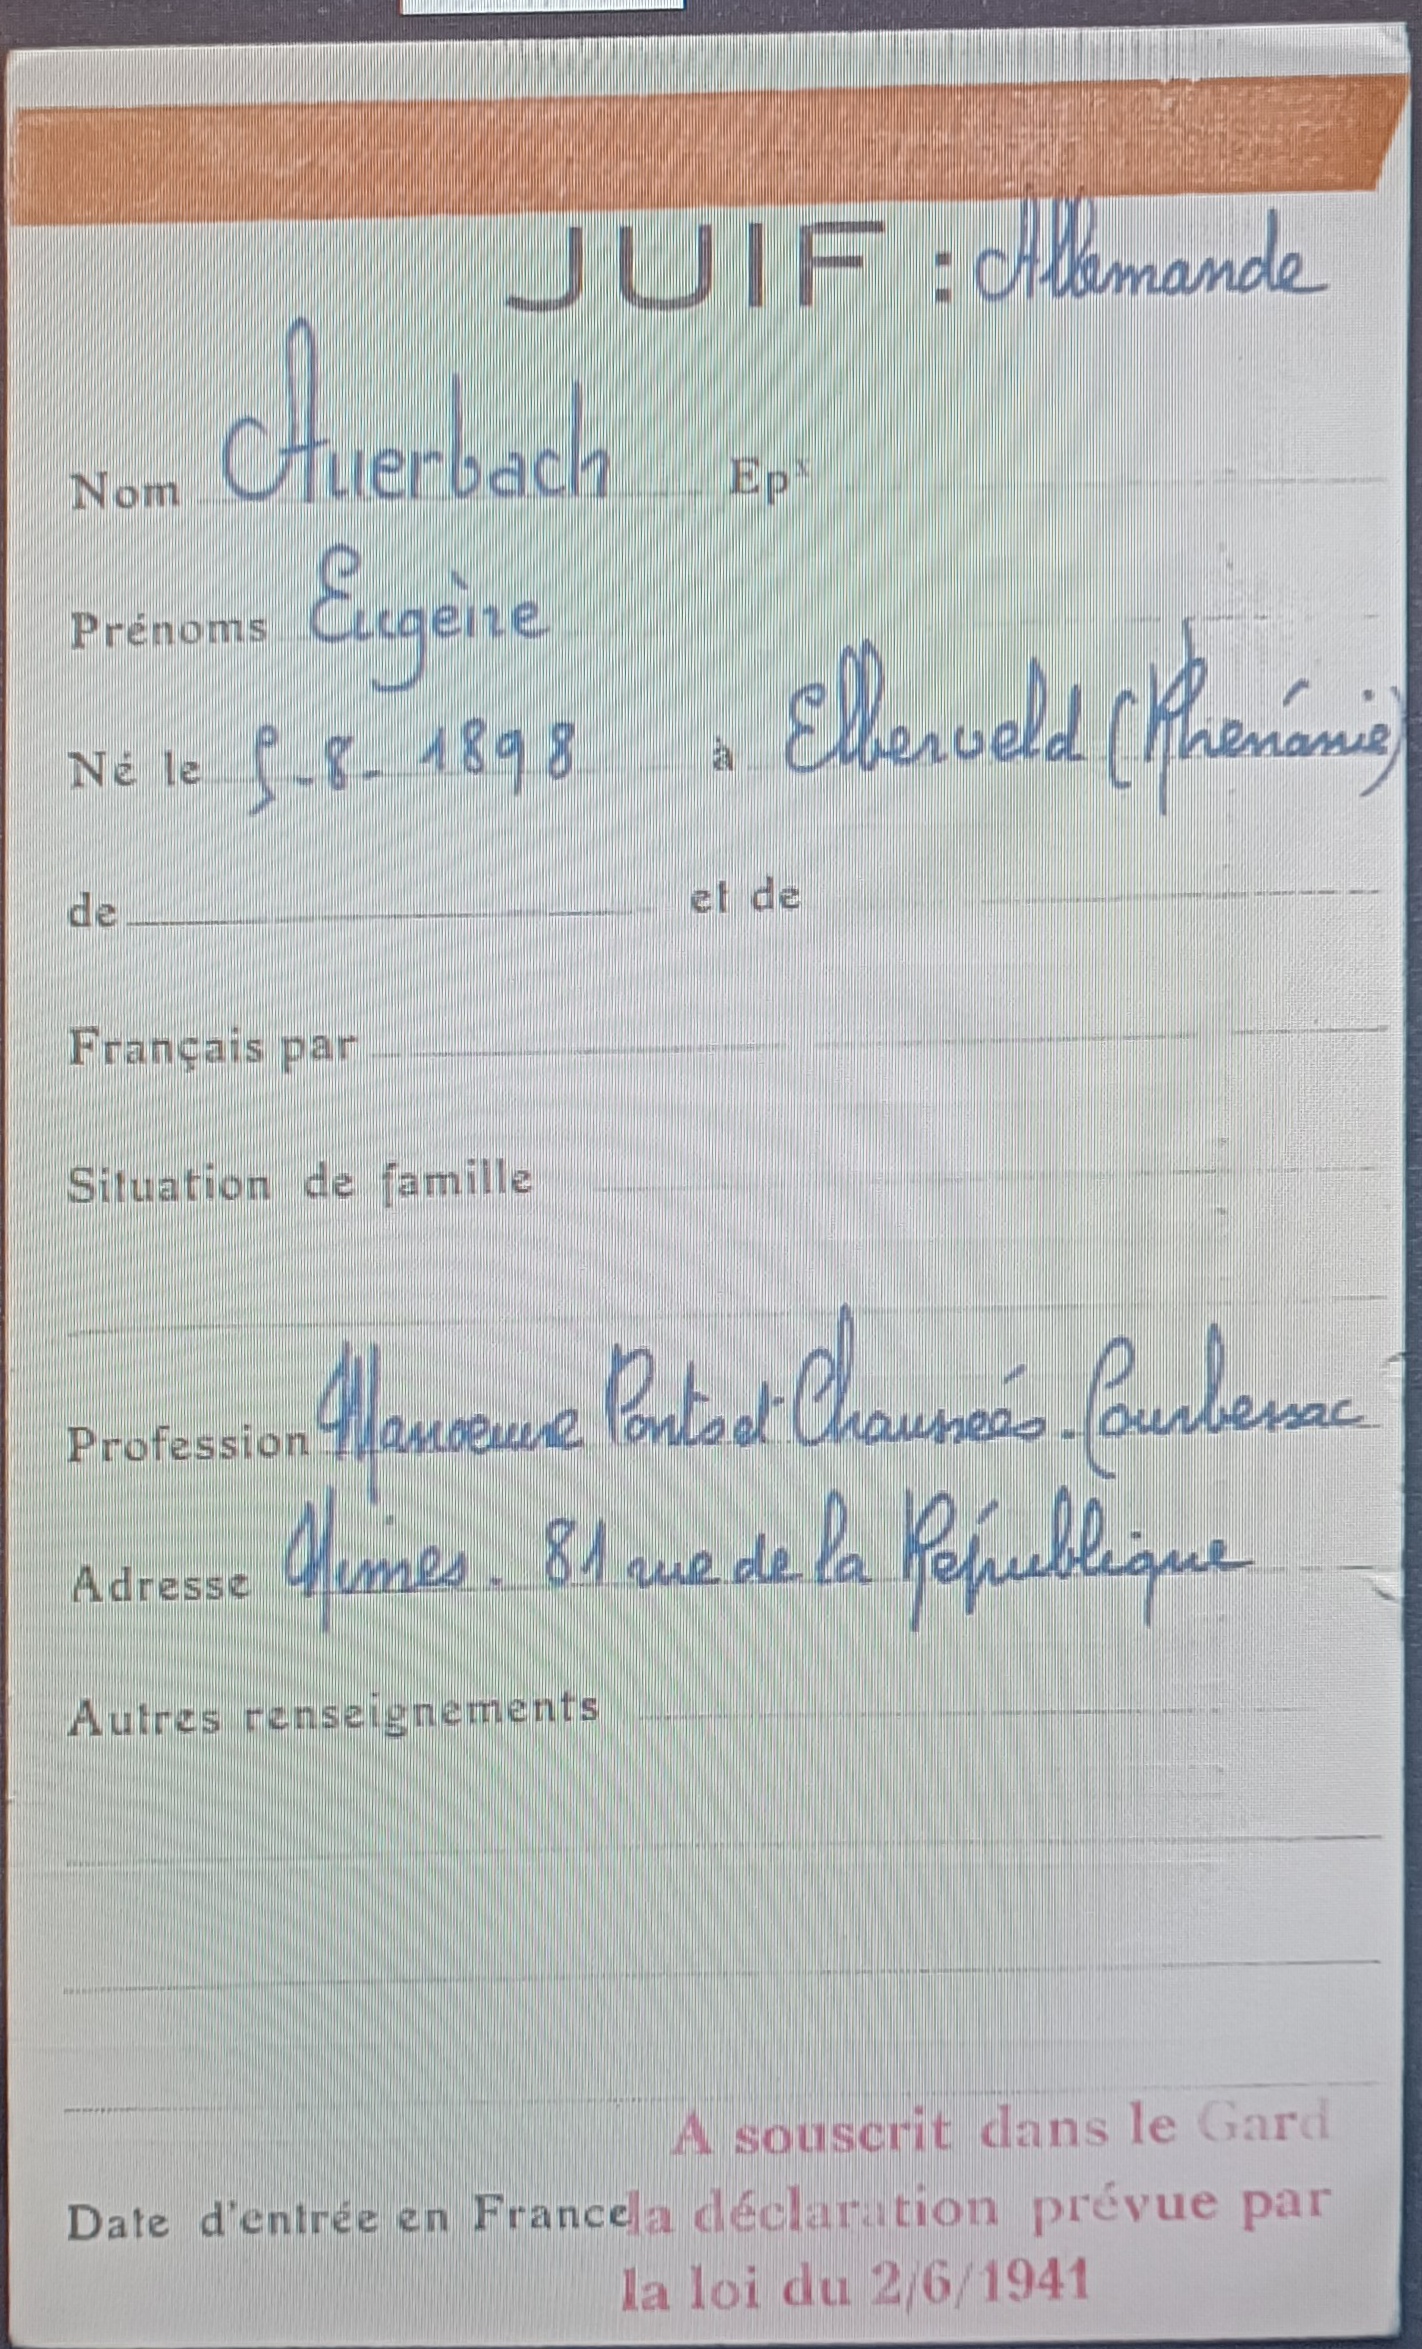 JUIF : Allemande
Nom Auerbach Epx
Prénoms Eugène
Né le 5-8-1898 à Elberveld (Rhénanie)
de et de
Français par
Situation de famille
Profession Manoeuvre Ponts et Chaussées. Courbessac
Adresse Nimes. 81 rue de la République
Autres renseignements
A souscrit dans le Gard
Date d'entrée en France la déclaration prévue par
la loi du 2/6/1941